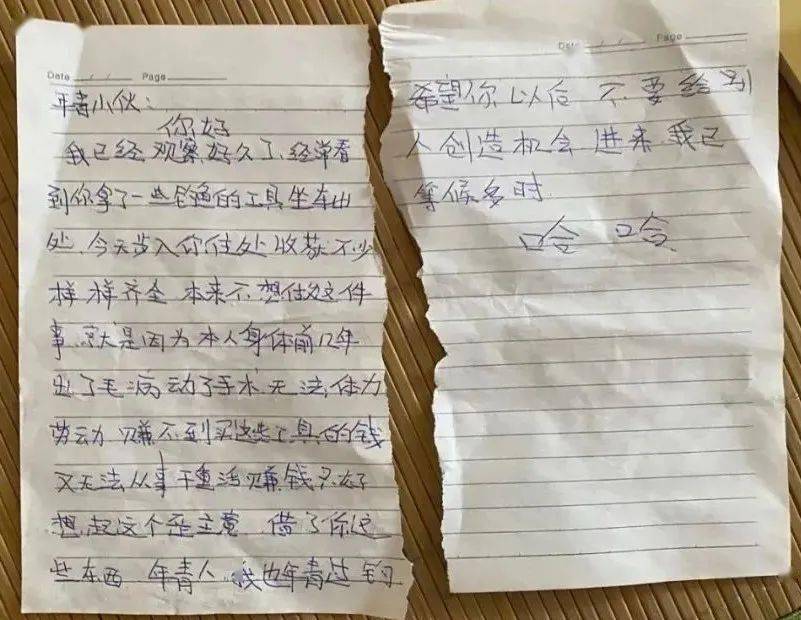 Date / / Page
年青小伙:
你好
我已经观察好久了,经常看
到你拿了一些钓鱼的工具坐车出
处,今天步入你住处收获不少
样样齐全 本来不想做这件
事,就是因为本人身体前几年
出了毛病动了手术无法体力
劳动 赚不到买这些工具的钱
又无法从事干重活赚钱只好
想起这个歪主意 借了你这
些东西 年青人 我也年青过 钓
Date / / Page
希望你以后 不要给别
人创造机会 进来 我已
等候多时
哈 哈